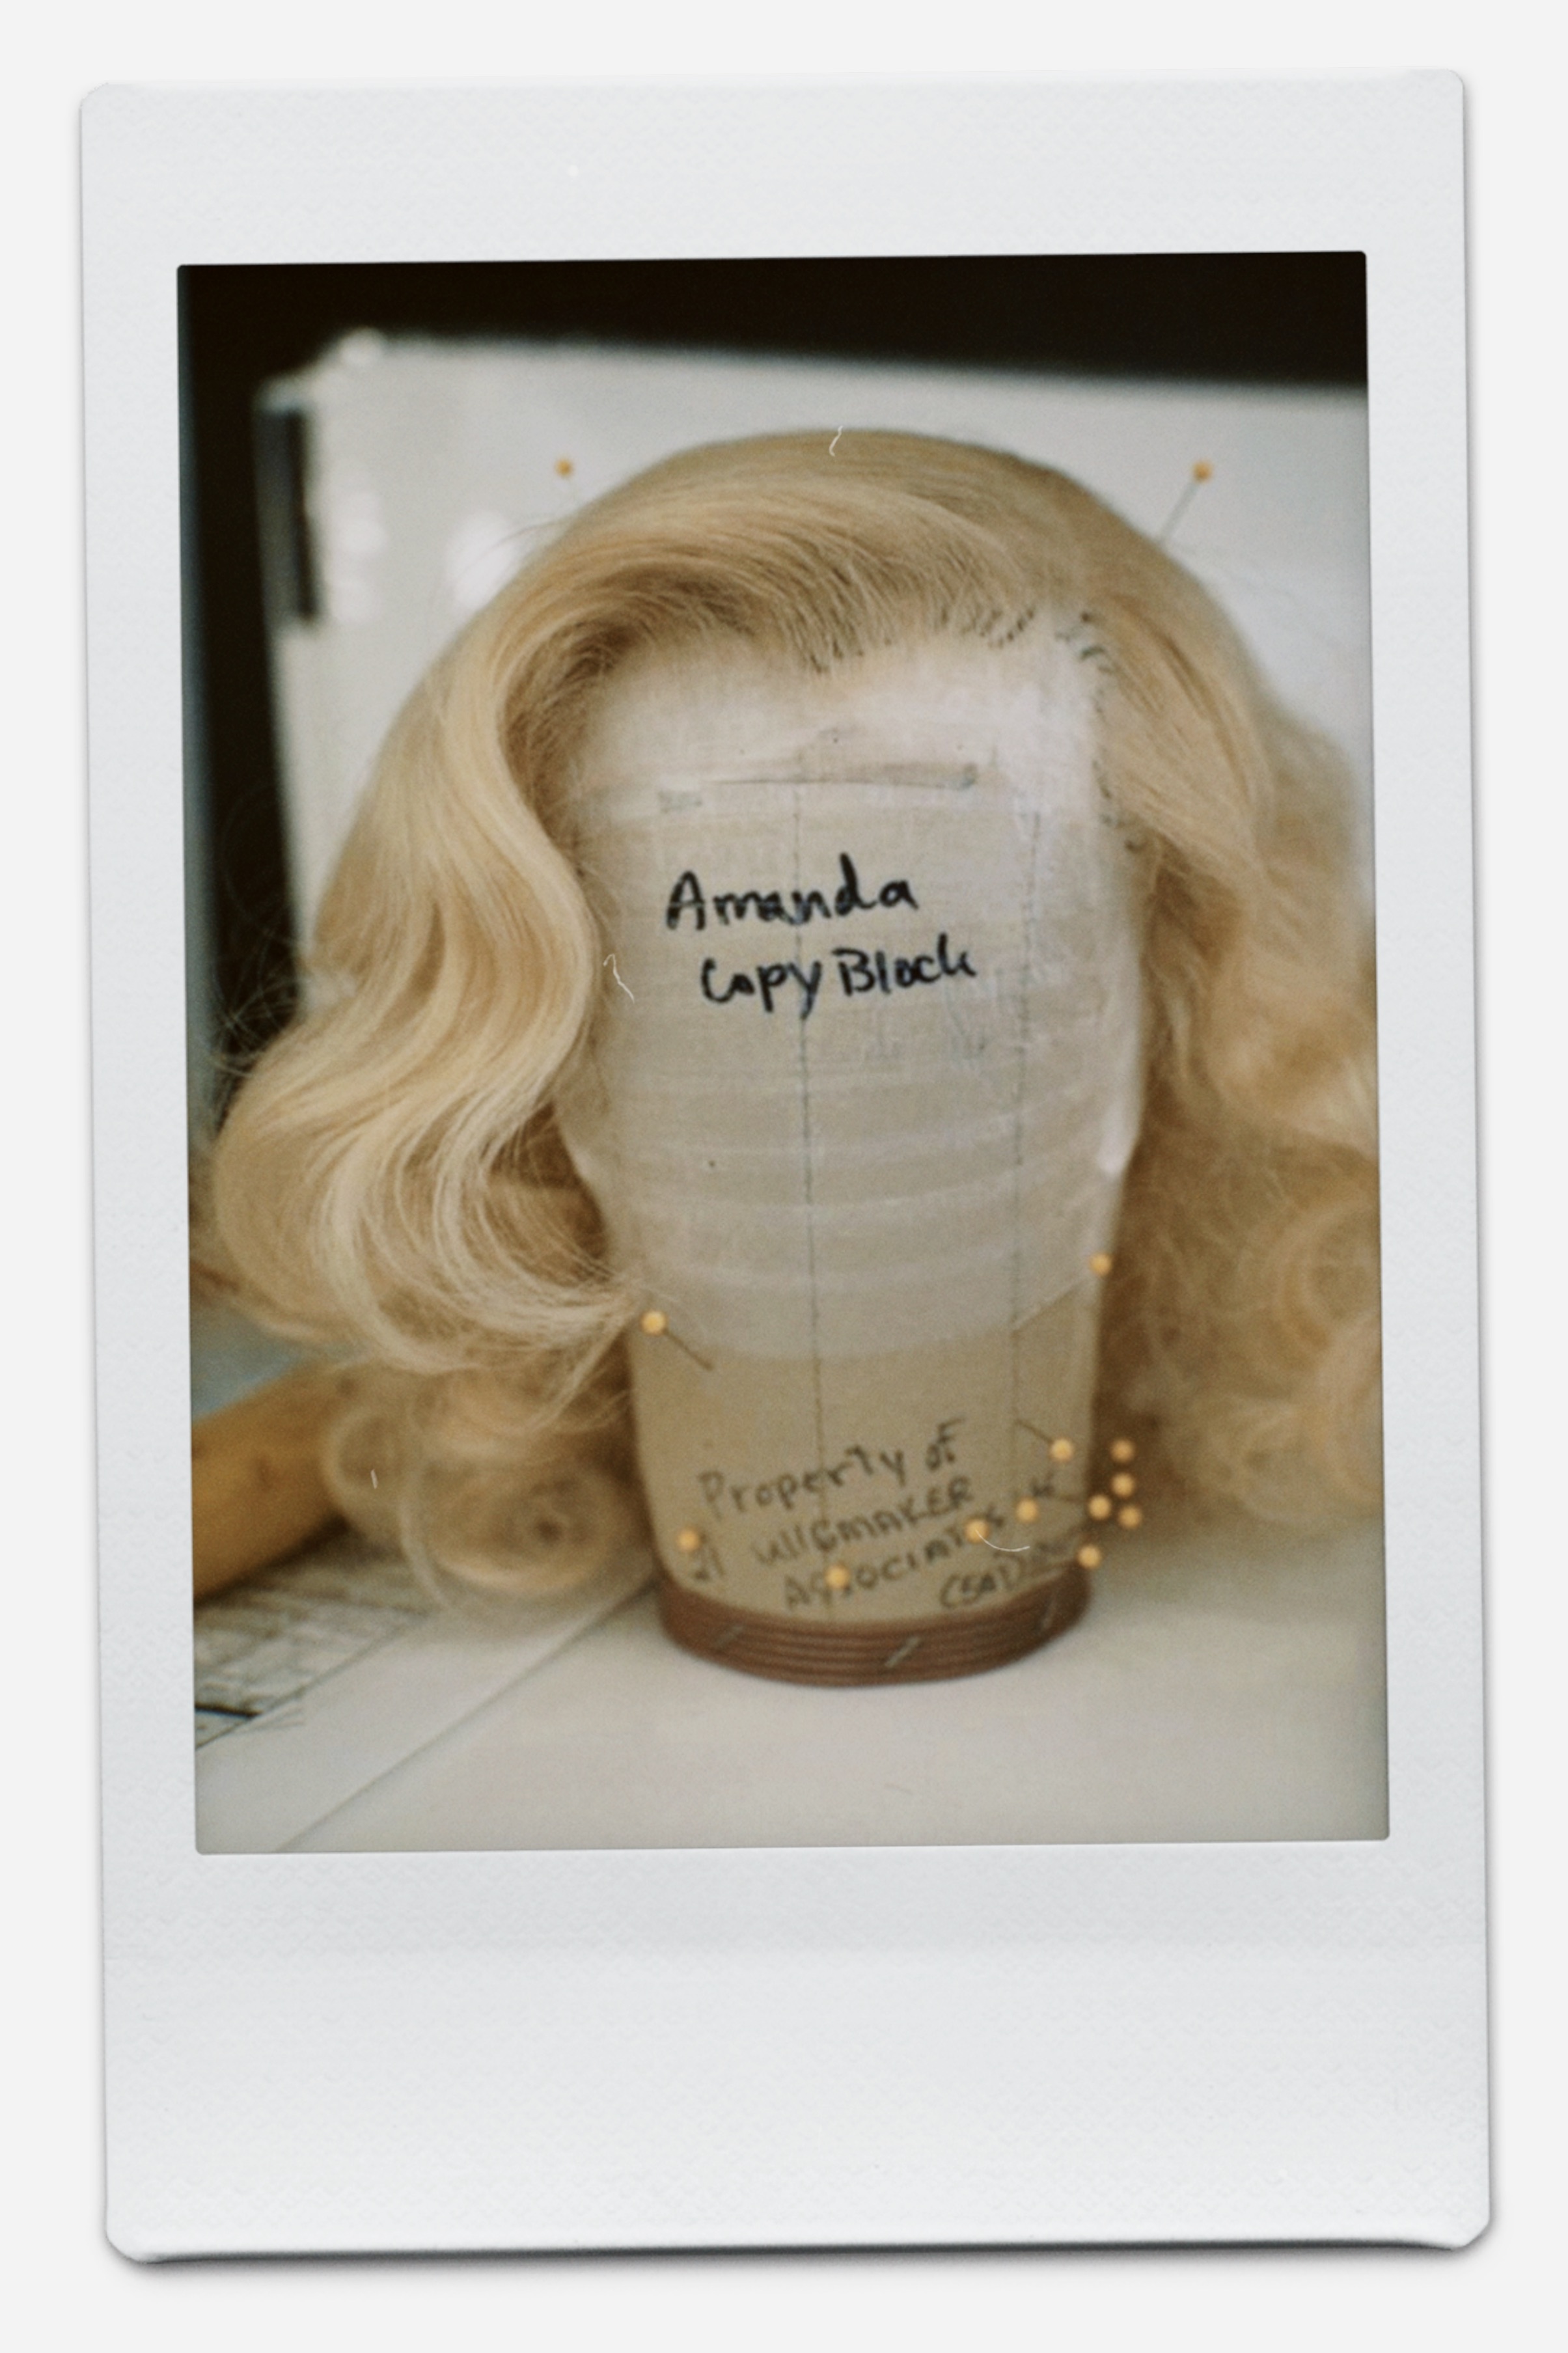 Amanda
Copy Block
Property of
WIGMAKER
ASSOCIATES